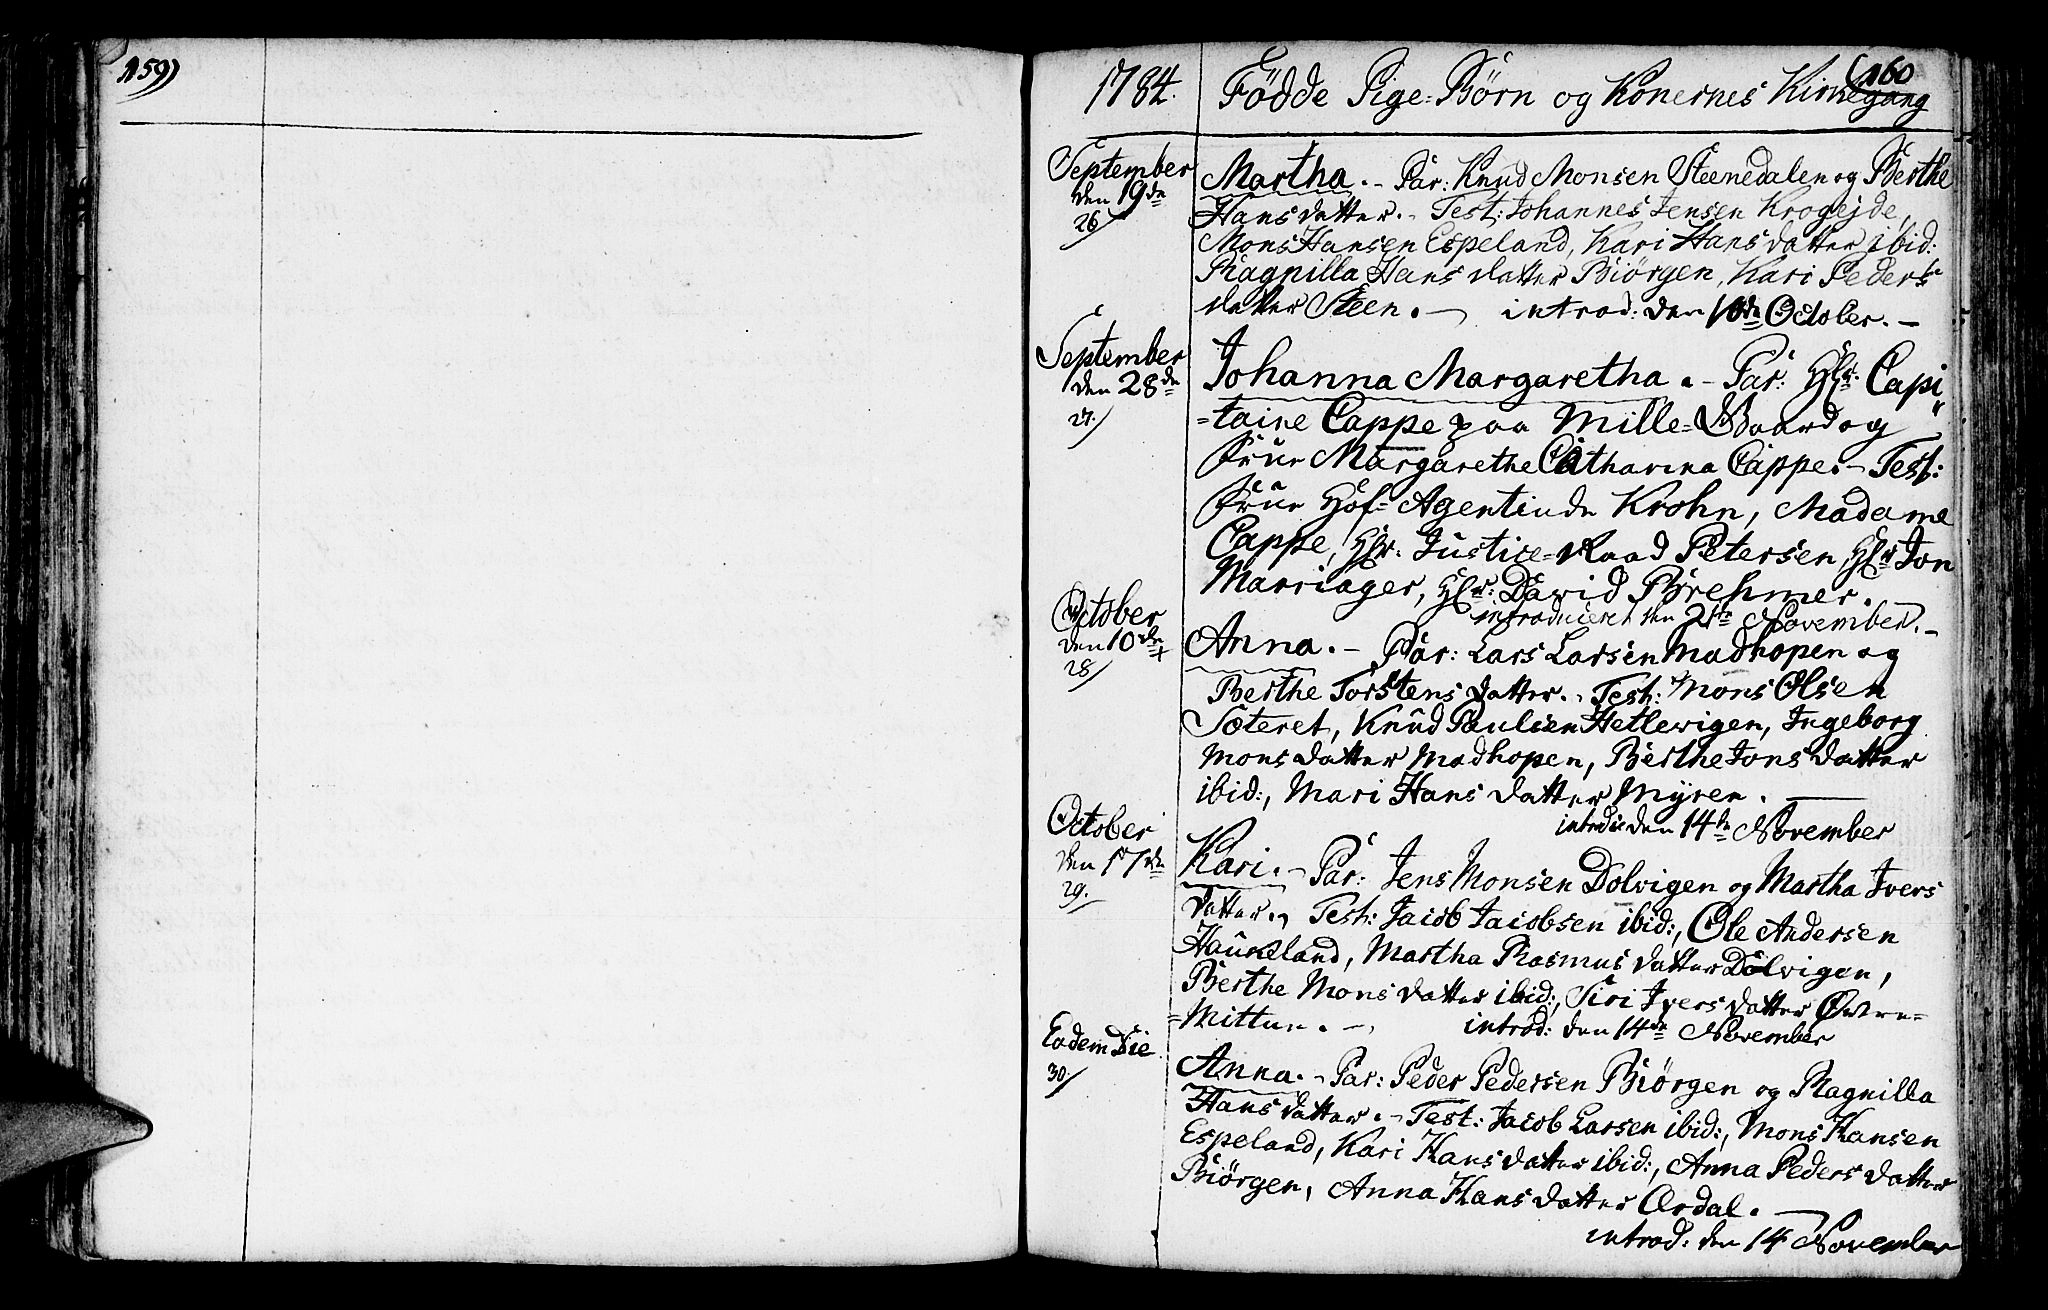 159)
(160
1784. Födde Pige-Börn og Konernes Kirkegang
September
den 19de
26/
Martha. - Par: Knud Monsen Steenedalen og Berthe
Hansdatter. - Test: Johannes Jensen Krogejde,
Mons Hansen Espeland, Kari Hansdatter ibid:
Ragnilla Hansdatter Biörgen, Kari Peders
datter Steen. - introd: den 10de October. -
September
den 28de
27./
Johanna Margaretha. - Par: Hr. Capi
-taine Cappe paa Mille-Gaard og
Frue Margarethe Catharina Cappe. - Test:
Frue Hof-Agentinde Krohn, Madame
Cappe, Hr. Justice-Raad Petersen, Hr Jon
Marriager, Hr: David Brehmer.
introduceret den 21de November. -
October
den 10de +
28/
Anna. - Par: Lars Larsen Madhopen og
Berthe Torstensdatter. - Test: Mons Olsen
Sæteret, Knud Paulsen Hetlevigen, Ingeborg
Monsdatter Madhopen, Berthe Jonsdatter
ibid:, Mari Hansdatter Myren.
introd: den 14de November
October
den 17de
29./
Kari. - Par: Jens Monsen Dolvigen og Martha Ivers
datter. - Test: Jacob Jacobsen ibid:, Ole Andersen
Haukeland, Martha Rasmusdatter Dolvigen,
Berthe Monsdatter ibid:, Siri Iversdatter Övre-
-Mittun. - introd: den 14de November
Eodem Die
30./
Anna. - Par: Peder Pedersen Biörgen og Ragnilla
Hansdatter. - Test: Jacob Larsen ibid:, Mons Hansen
Espeland, Kari Hansdatter ibid:, Anna Pedersdatter
Biörgen, Anna Hansdatter Ordal. -
introd: den 14 November